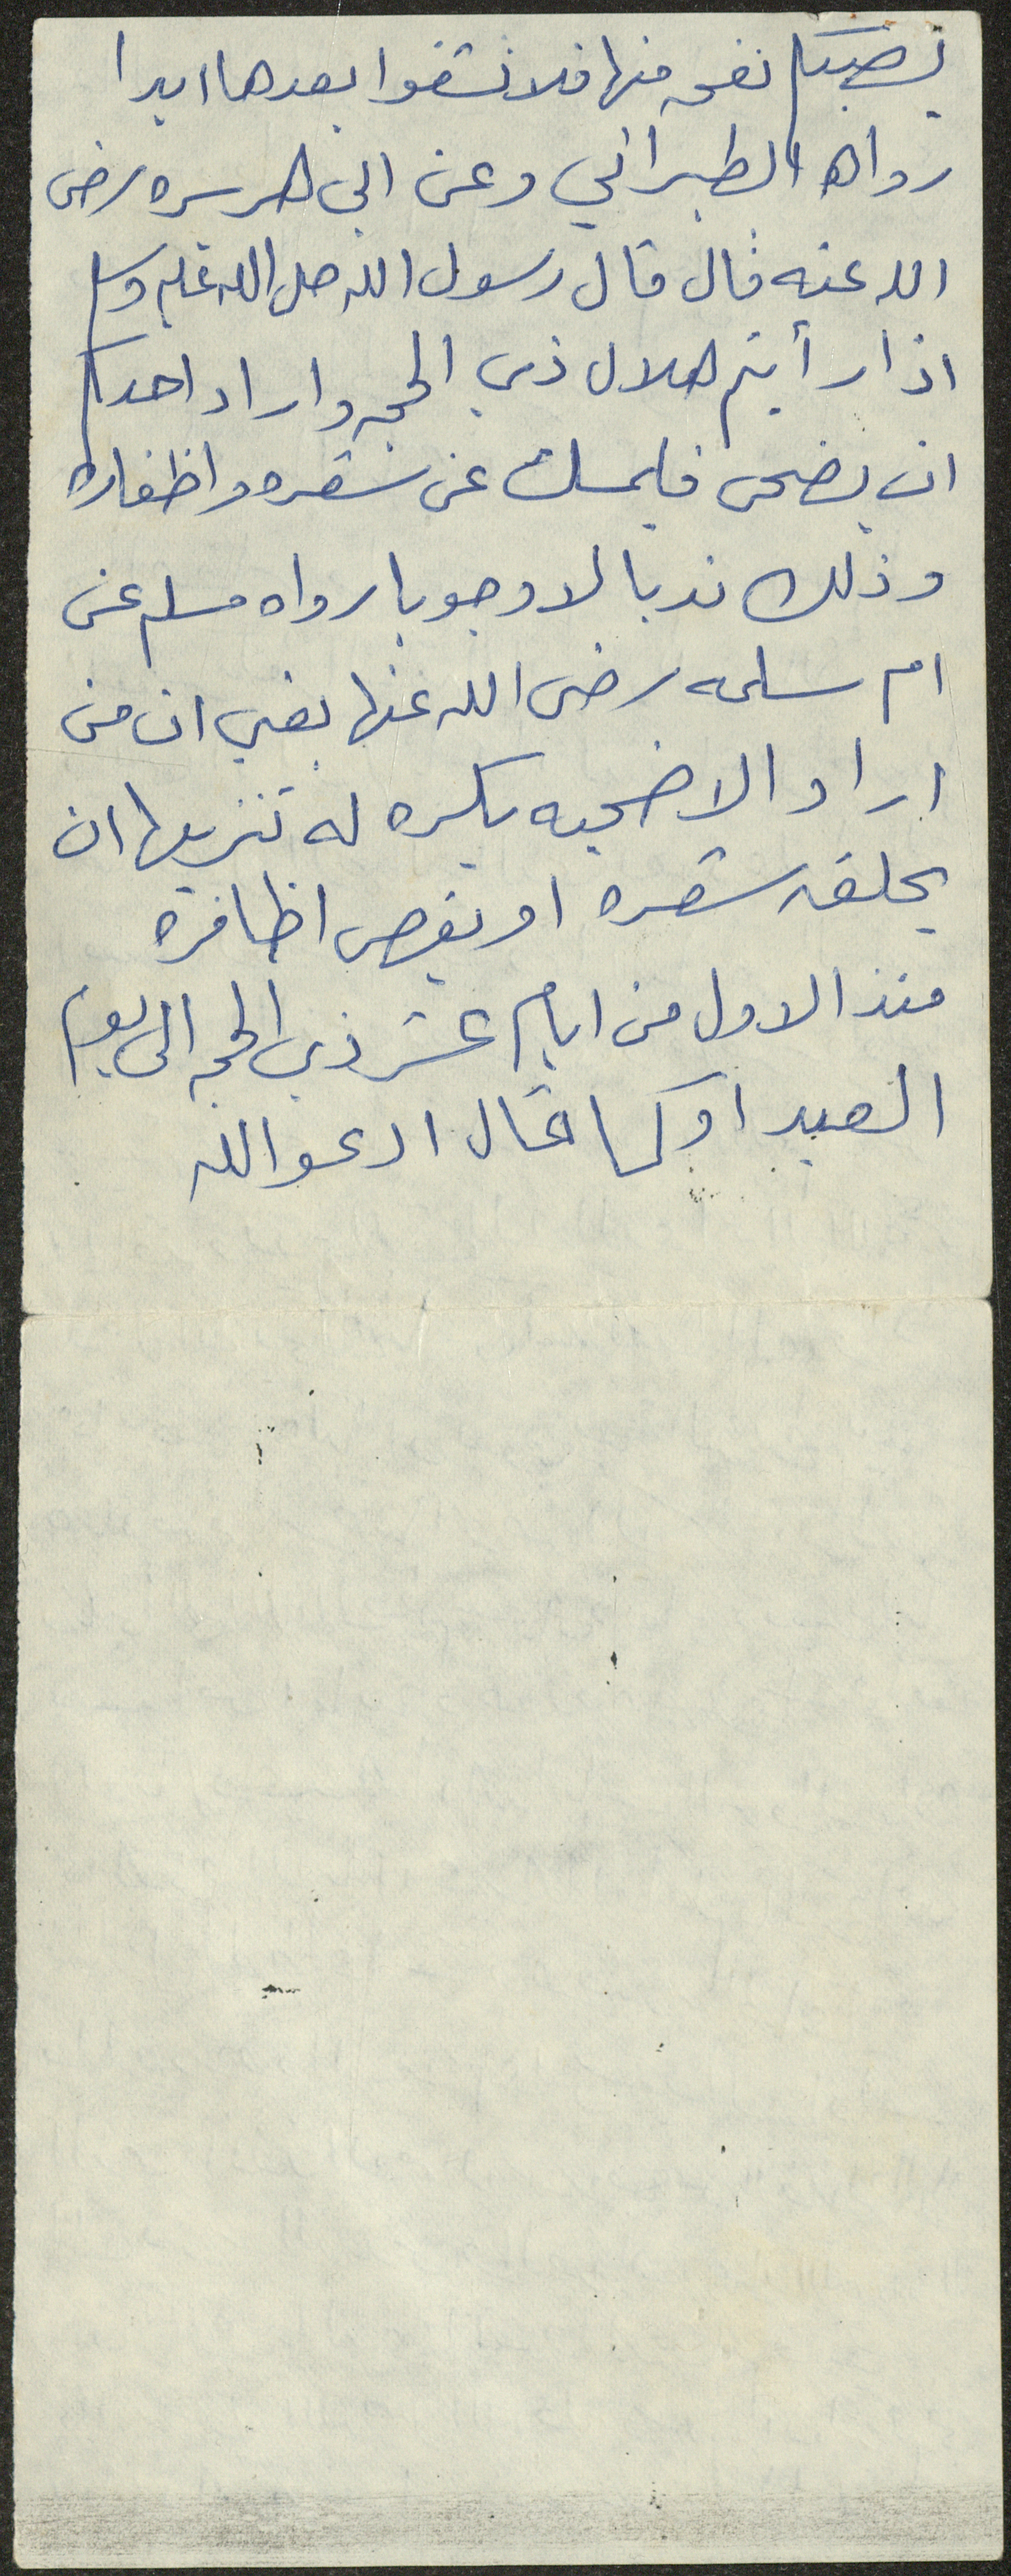 يصيبكم نفحه منها فلا تشقوا بعدها ابدا
رواه الطبراني وعن ابي هريره رضي
الله عنه قال قال رسول الله صلى الله عليه وسلم
اذا رأيتم هلال ذي الحجه واراد احدكم
ان يضحي فليمسك عن شعره واظفاره
وذلك ندبا لا وجوبا رواه مسلم عن
ام سلمه رضي الله عنها يعني ان من
اراد الاضحيه يكره له تنزيها ان
يحلق شعره او يقص اظافره
منذ الاول من ايام عشر ذي الحجه الى يوم
العيد او كما قال ادعو الله